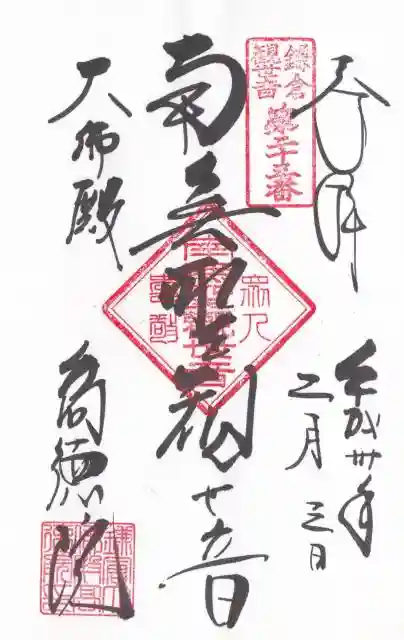 奉拝
平成卅年
二月三日
鎌倉
觀音
第二十三番
南無聖観世音
大佛殿
高徳院